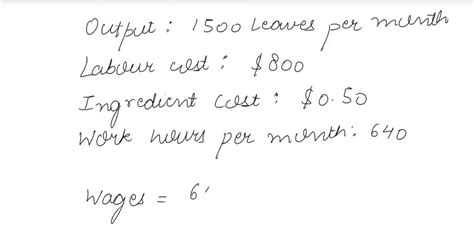 Output : 1500 Leaves per month
Labour cost : $800
Ingredient cost : $0.50
Work hours per month : 640
Wages = 6